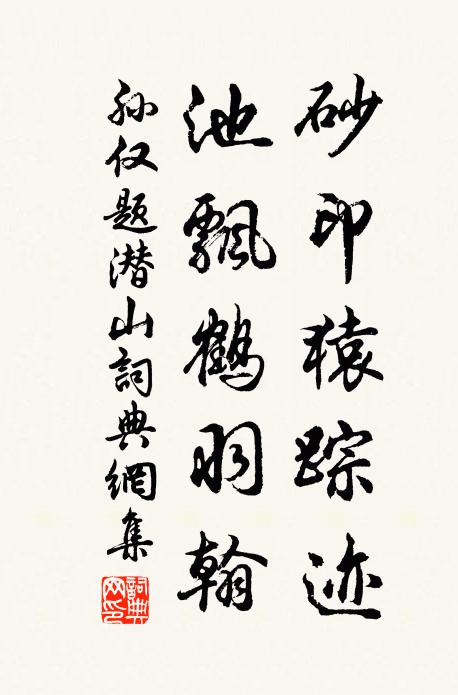 砂印猿踪迹
池飄鶴羽翰
孙仅题潜山詞典網集
詞典网印